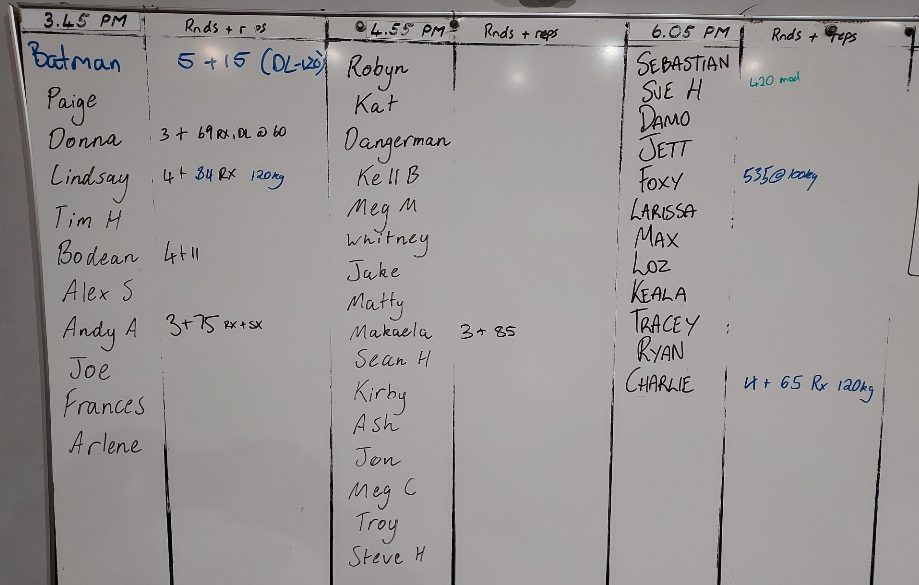 3.45 PM Rnds + r ps 4.55 PM Rnds + reps 6.05 PM Rnds + reps
Batman 5 + 15 (DL-120)
Paige
Donna 3 + 69 RX, DL @ 60
Lindsay 4 + 84 RX 120kg
Tim H
Bodean 4+11
Alex S
Andy A 3+75 RX + SX
Joe
Frances
Arlene
Robyn
Kat
Dangerman
Kell B
Meg M
Whitney
Jake
Matty
Makaela 3 + 85
Sean H
Kirby
Ash
Jon
Meg C
Troy
Steve H
SEBASTIAN
SUE H 420 mod
DAMO
JETT
FOXY 535@100kg
LARISSA
MAX
LOZ
KEALA
TRACEY
RYAN
CHARLIE 4 + 65 Rx 120kg